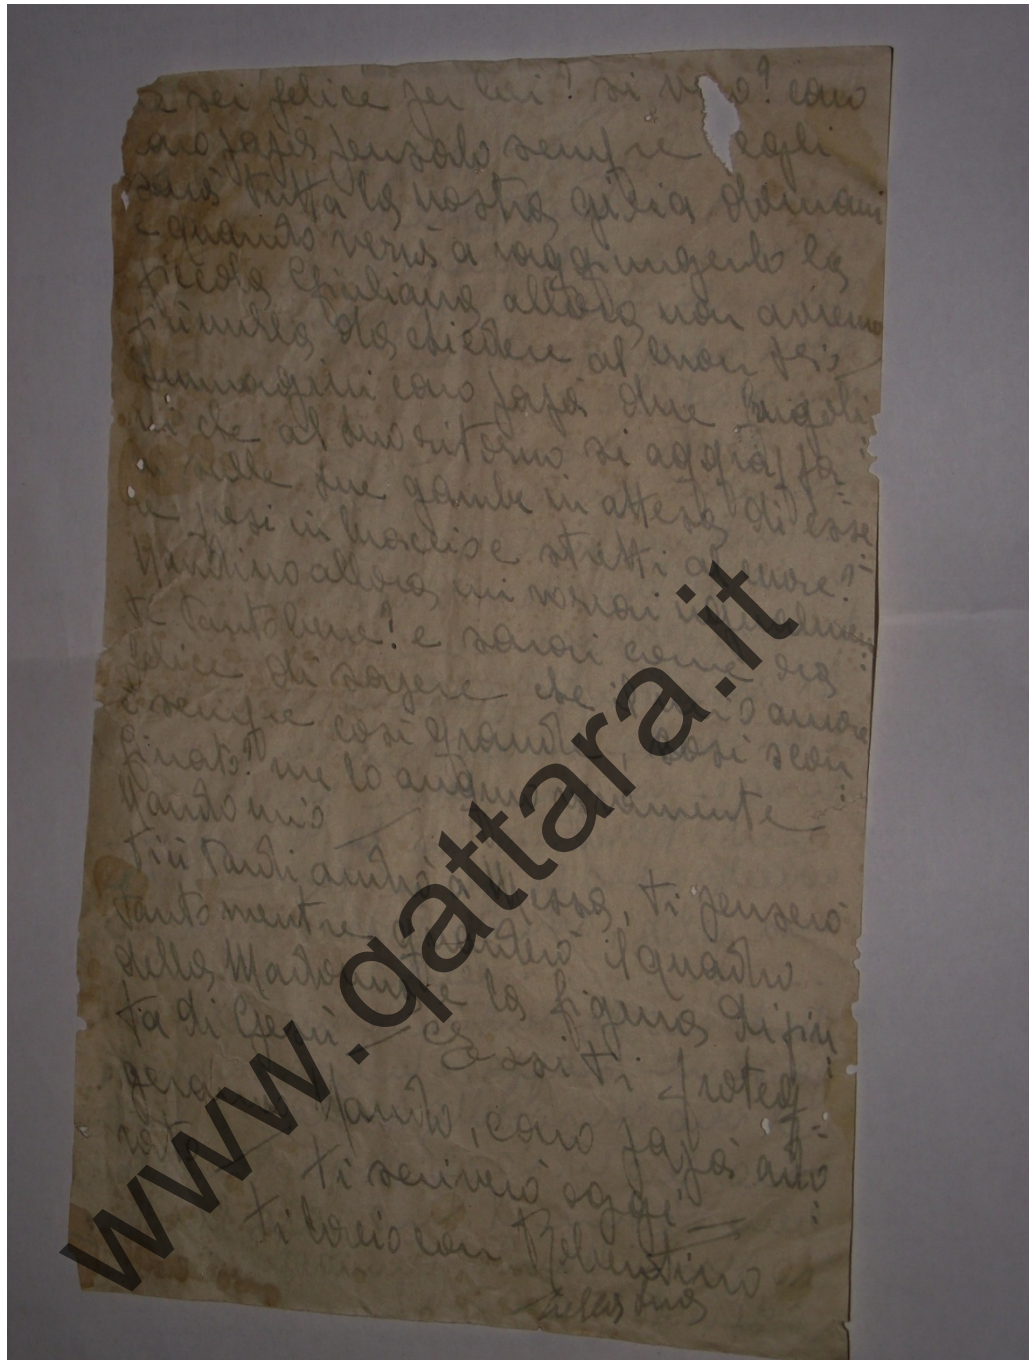 e sei felice per lui? si vero? caro
mio papà pensalo sempre egli
sarà tutta la nostra gioia domani
e quando verrà a raggiungerlo la
piccola Giuliana allora non avremo
più nulla da chiedere al buon Dio
Immagini caro papà due angeli
ni che al tuo ritorno si aggrappa
o alle tue gambe in attesa di esse
re presi in braccio e stretti al cuore?
allora mi vorrai
te tanto bene! e sarai come ora
felice di sapere che il mio amore
è sempre così grande, così scon
finato? me lo auguro
Nando mio
Più tardi andrò a Messa, ti penserò
tanto mentre guarderò il quadro
della Madonna e la figura dipin
ta di Gesù — Essi ti proteg
geranno Nando, caro papà ado
rato
ti scriverò oggi
ti bacio con Robertino
la tua
www.qattara.it